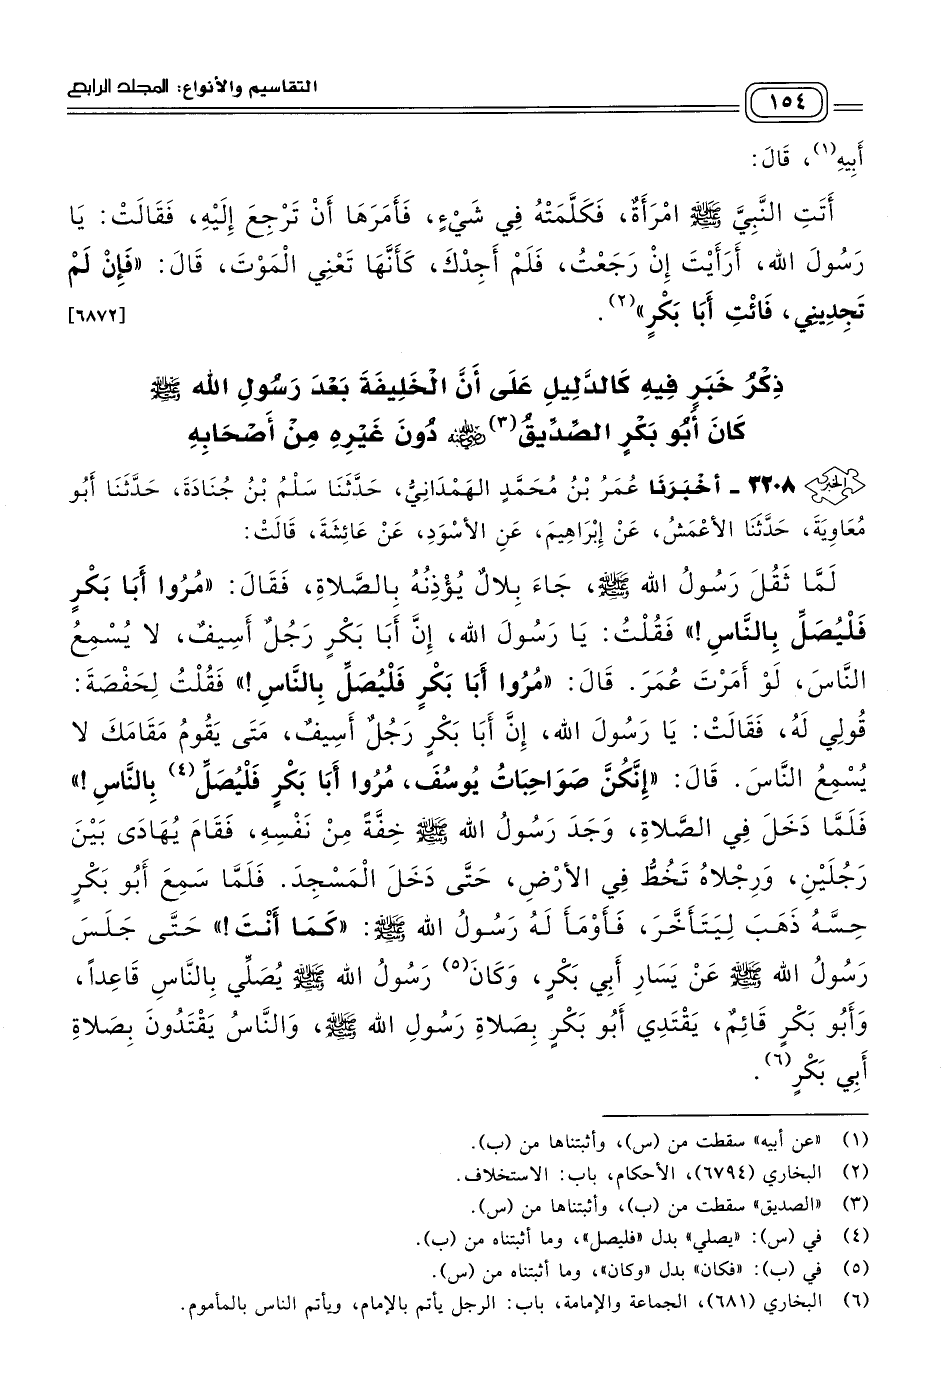 التقاسيم والأنواع: المجلد الرابع
١٥٤
أَبِيهِ(١)، قَالَ:
أَتَتِ النَّبِيَّ ﷺ امْرَأَةٌ، فَكَلَّمَتْهُ فِي شَيْءٍ، فَأَمَرَهَا أَنْ تَرْجِعَ إِلَيْهِ، فَقَالَتْ: يَا
رَسُولَ اللهِ، أَرَأَيْتَ إِنْ رَجَعْتُ، فَلَمْ أَجِدْكَ، كَأَنَّهَا تَعْنِي الْمَوْتَ، قَالَ: «فَإِنْ لَمْ
تَجِدِينِي، فَائْتِ أَبَا بَكْرٍ»(٢). [٦٨٧٢]
ذِكْرُ خَبَرٍ فِيهِ كَالدَّلِيلِ عَلَى أَنَّ الْخَلِيفَةَ بَعْدَ رَسُولِ اللهِ ﷺ
كَانَ أَبُو بَكْرٍ الصِّدِّيقُ(٣) رضي الله عنه دُونَ غَيْرِهِ مِنْ أَصْحَابِهِ
٣٢٠٨ - أَخْبَرَنَا عُمَرُ بْنُ مُحَمَّدٍ الهَمْدَانِيُّ، حَدَّثَنَا سَلْمُ بْنُ جُنَادَةَ، حَدَّثَنَا أَبُو
مُعَاوِيَةَ، حَدَّثَنَا الأَعْمَشُ، عَنْ إِبْرَاهِيمَ، عَنِ الأَسْوَدِ، عَنْ عَائِشَةَ، قَالَتْ:
لَمَّا ثَقُلَ رَسُولُ اللهِ ﷺ، جَاءَ بِلالٌ يُؤْذِنُهُ بِالصَّلاةِ، فَقَالَ: «مُرُوا أَبَا بَكْرٍ
فَلْيُصَلِّ بِالنَّاسِ!» فَقُلْتُ: يَا رَسُولَ اللهِ، إِنَّ أَبَا بَكْرٍ رَجُلٌ أَسِيفٌ، لا يُسْمِعُ
النَّاسَ، لَوْ أَمَرْتَ عُمَرَ. قَالَ: «مُرُوا أَبَا بَكْرٍ فَلْيُصَلِّ بِالنَّاسِ!» فَقُلْتُ لِحَفْصَةَ:
قُولِي لَهُ، فَقَالَتْ: يَا رَسُولَ اللهِ، إِنَّ أَبَا بَكْرٍ رَجُلٌ أَسِيفٌ، مَتَى يَقُومُ مَقَامَكَ لا
يُسْمِعُ النَّاسَ. قَالَ: «إِنَّكُنَّ صَوَاحِبَاتُ يُوسُفَ، مُرُوا أَبَا بَكْرٍ فَلْيُصَلِّ(٤) بِالنَّاسِ!»
فَلَمَّا دَخَلَ فِي الصَّلاةِ، وَجَدَ رَسُولُ اللهِ ﷺ خِفَّةً مِنْ نَفْسِهِ، فَقَامَ يُهَادَى بَيْنَ
رَجُلَيْنِ، وَرِجْلاهُ تَخُطُّ فِي الأَرْضِ، حَتَّى دَخَلَ الْمَسْجِدَ. فَلَمَّا سَمِعَ أَبُو بَكْرٍ
حِسَّهُ ذَهَبَ لِيَتَأَخَّرَ، فَأَوْمَأَ لَهُ رَسُولُ اللهِ ﷺ: «كَمَا أَنْتَ!» حَتَّى جَلَسَ
رَسُولُ اللهِ ﷺ عَنْ يَسَارِ أَبِي بَكْرٍ، وَكَانَ(٥) رَسُولُ اللهِ ﷺ يُصَلِّي بِالنَّاسِ قَاعِداً،
وَأَبُو بَكْرٍ قَائِمٌ، يَقْتَدِي أَبُو بَكْرٍ بِصَلاةِ رَسُولِ اللهِ ﷺ، وَالنَّاسُ يَقْتَدُونَ بِصَلاةِ
أَبِي بَكْرٍ(٦).
(١) «عن أبيه» سقطت من (س)، وأثبتناها من (ب).
(٢) البخاري (٦٧٩٤)، الأحكام، باب: الاستخلاف.
(٣) «الصديق» سقطت من (ب)، وأثبتناها من (س).
(٤) في (س): «يصلي» بدل «فليصل»، وما أثبتناه من (ب).
(٥) في (ب): «فكان» بدل «وكان»، وما أثبتناه من (س).
(٦) البخاري (٦٨١)، الجماعة والإمامة، باب: الرجل يأتم بالإمام، ويأتم الناس بالمأموم.